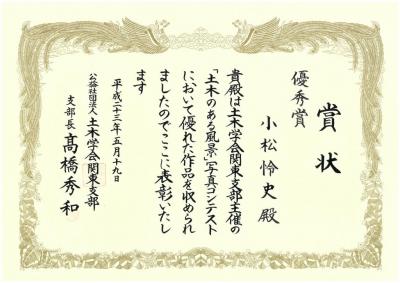 賞状
優秀賞
小松怜史殿
貴殿は土木学会関東支部主催の
「土木のある風景」写真コンテスト
において優れた作品を収められ
ましたのでここに表彰いたし
ます
平成二十三年五月十九日
公益社団法人土木学会関東支部
支部長 髙橋秀和